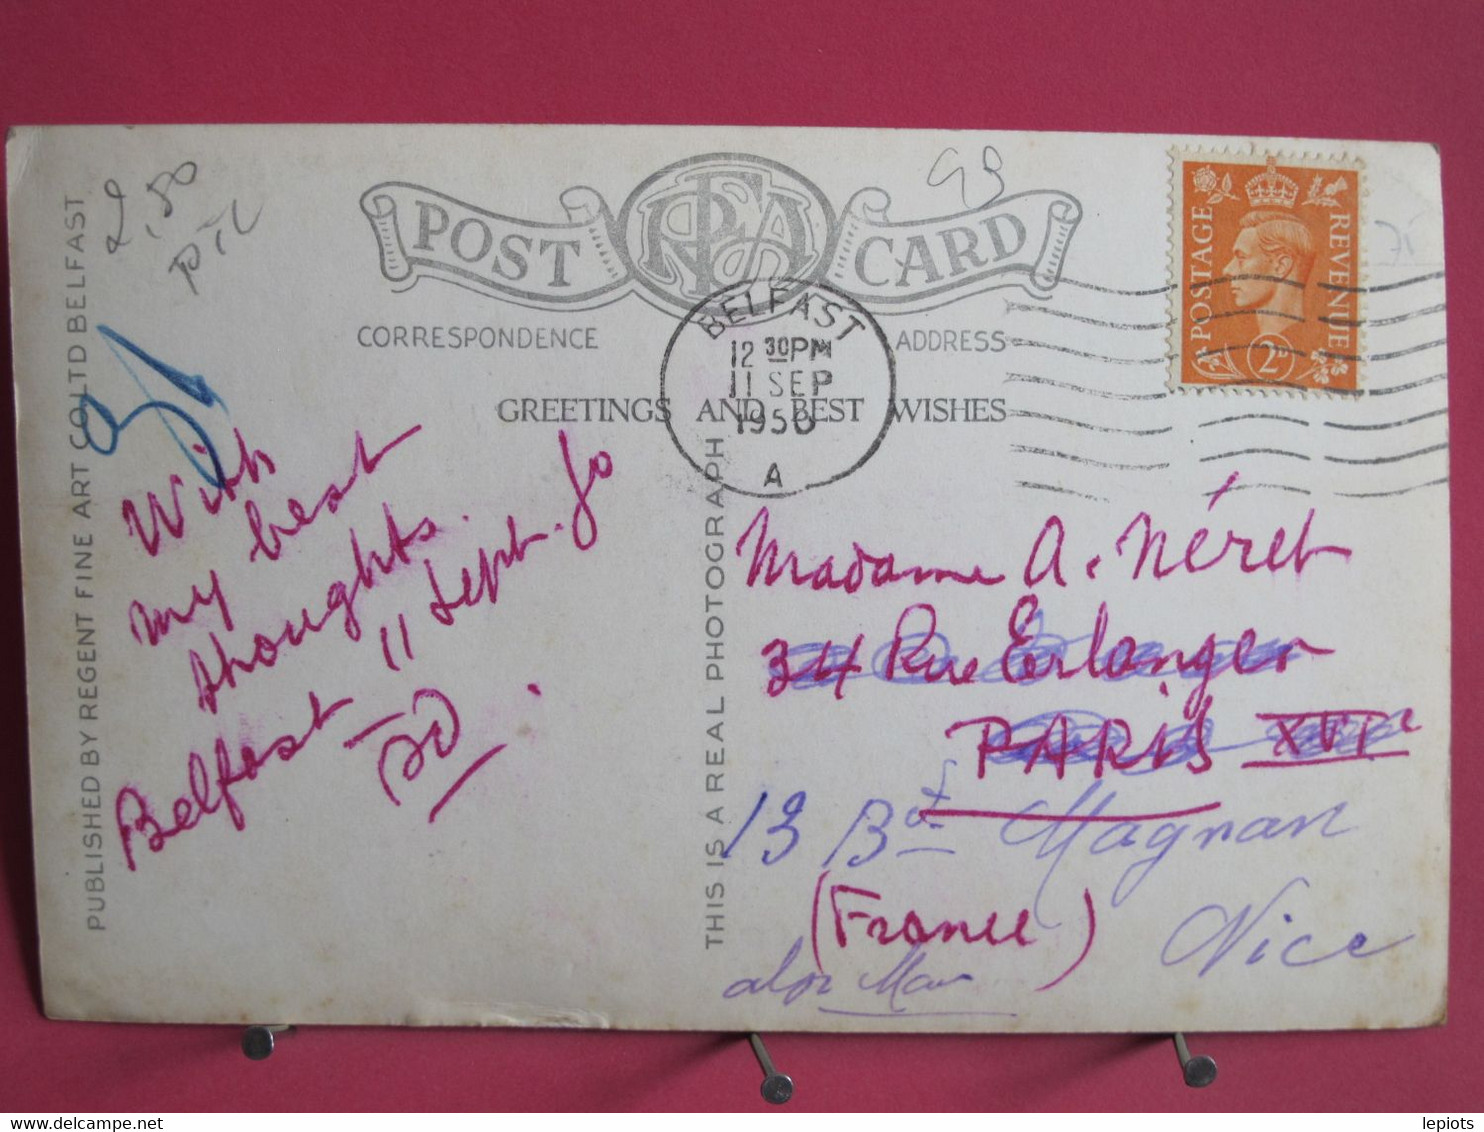 POST CARD
CORRESPONDENCE ADDRESS
GREETINGS AND BEST WISHES
BELFAST
12 30PM
11 SEP
1950
A
POSTAGE REVENUE
2D
PUBLISHED BY REGENT FINE ART CO LTD BELFAST
THIS IS A REAL PHOTOGRAPH
2,50
GB
With
my best
thoughts.
Belfast 11 Sept. 50
Madame A. Néret
34 Rue Erlanger
PARIS XVIe
13 Bd Magnan
(France)
Nice
lepiots